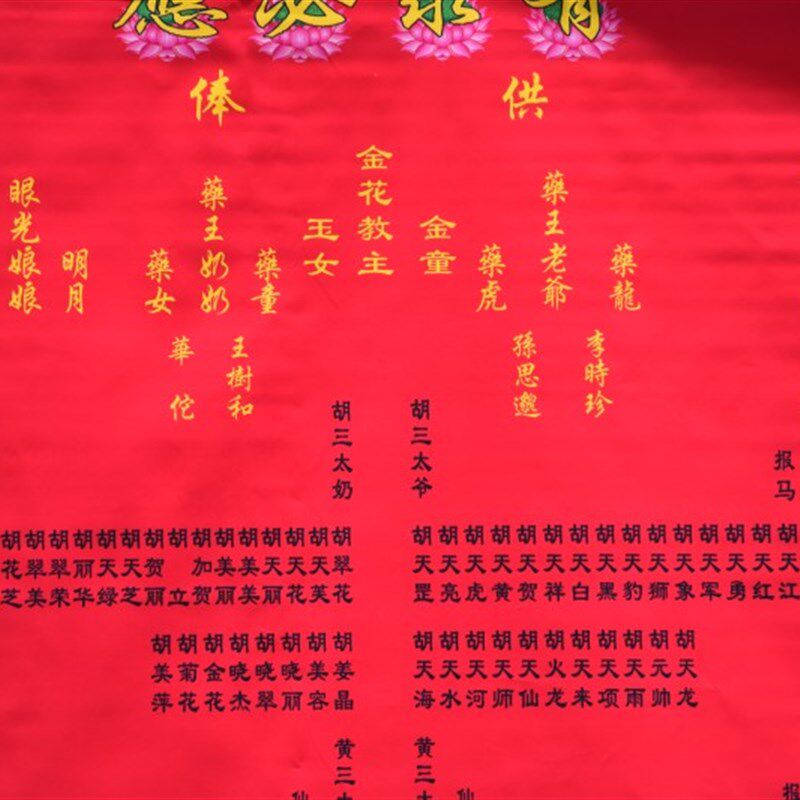 有求必應
供俸
藥龍
藥王老爺
藥虎
金童
金花教主
玉女
藥童
藥王奶奶
藥女
明月
眼光娘娘
李時珍
孫思邈
王樹和
華佗
报马
胡三太爷
胡三太奶
胡天江
胡天红
胡天勇
胡天军
胡天象
胡天狮
胡天豹
胡天黑
胡天白
胡天祥
胡天贺
胡天黄
胡天虎
胡天亮
胡天罡
胡翠花
胡天芙
胡天花
胡天丽
胡美美
胡美丽
胡加贺
胡立
胡贺丽
胡天芝
胡天绿
胡丽华
胡翠荣
胡翠美
胡花芝
胡天龙
胡元帅
胡天雨
胡天项
胡天来
胡火龙
胡天仙
胡天师
胡天河
胡天水
胡天海
胡姜晶
胡美容
胡晓丽
胡晓翠
胡晓杰
胡金花
胡菊花
胡美萍
报
仙
黄三
黄三
仙